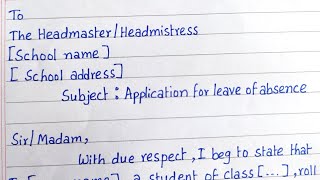 To
The Headmaster/Headmistress
[School name]
[ School address]
Subject : Application for leave of absence
Sir/Madam,
With due respect, I beg to state that
a student of class [...], roll